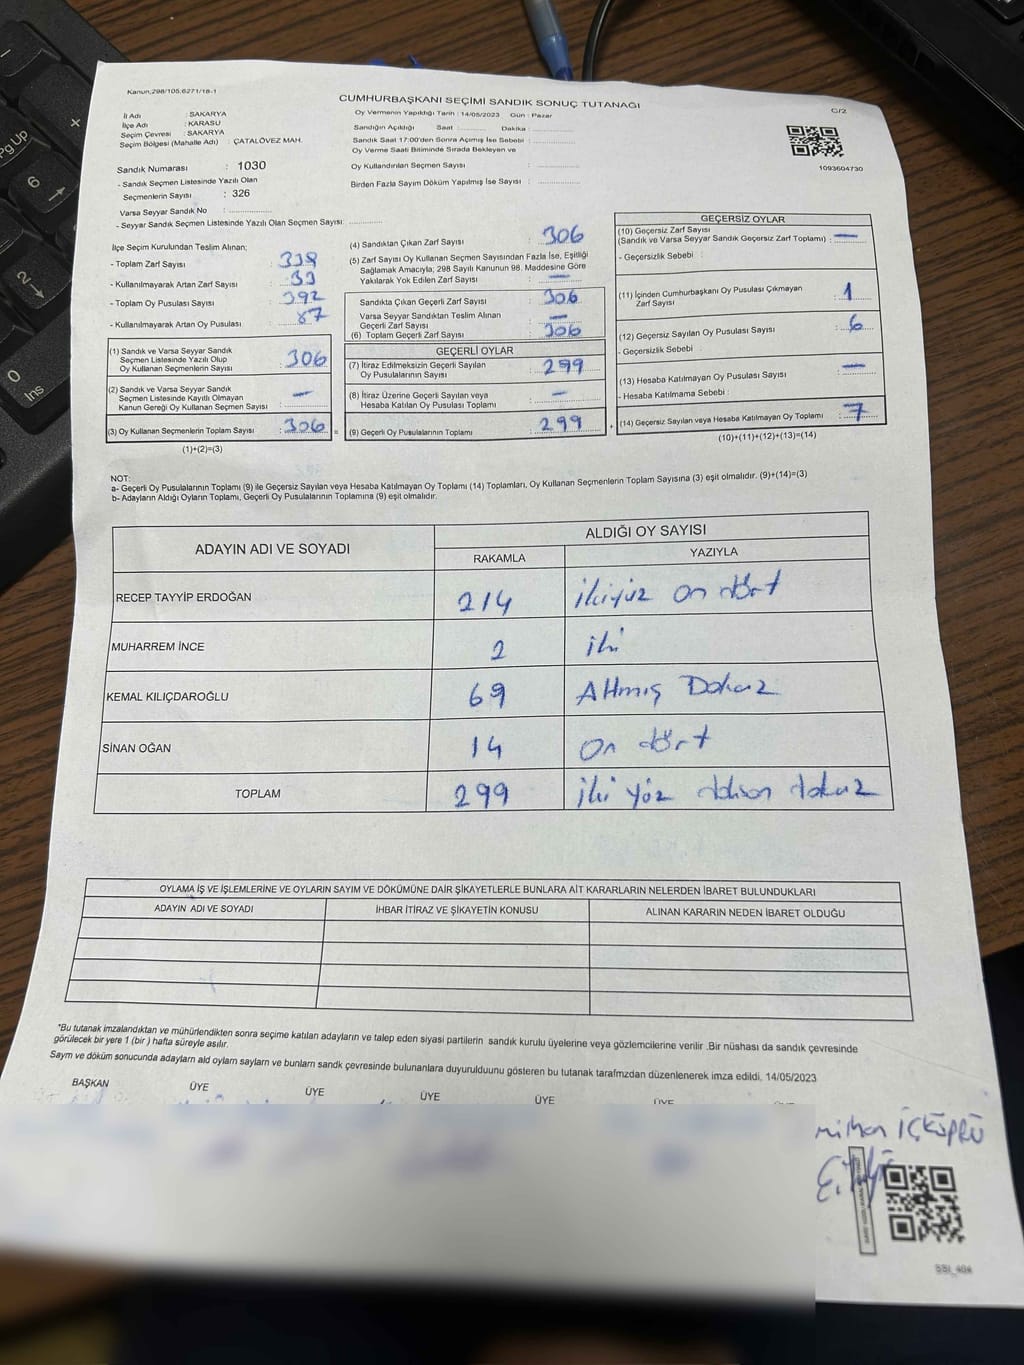 Kanun:298/105,6271/18-1
CUMHURBAŞKANI SEÇİMİ SANDIK SONUÇ TUTANAĞI
C/2
İl Adı : SAKARYA
İlçe Adı : KARASU
Seçim Çevresi : SAKARYA
Seçim Bölgesi (Mahalle Adı) : ÇATALÖVEZ MAH.
Sandık Numarası : 1030
- Sandık Seçmen Listesinde Yazılı Olan
Seçmenlerin Sayısı : 326
Varsa Seyyar Sandık No : ..................
- Seyyar Sandık Seçmen Listesinde Yazılı Olan Seçmen Sayısı: ..............
Oy Vermenin Yapıldığı Tarih : 14/05/2023 Gün : Pazar
Sandığın Açıldığı Saat : ........... Dakika : ................
Sandık Saat 17:00'den Sonra Açımış İse Sebebi : ................
Oy Verme Saati Bitiminde Sırada Bekleyen ve
Oy Kullandırılan Seçmen Sayısı : ................
Birden Fazla Sayım Döküm Yapılmış İse Sayısı : ................
1093604730
İlçe Seçim Kurulundan Teslim Alınan;
- Toplam Zarf Sayısı : 339
- Kullanılmayarak Artan Zarf Sayısı : 33
- Toplam Oy Pusulası Sayısı : 392
- Kullanılmayarak Artan Oy Pusulası : 87
(1) Sandık ve Varsa Seyyar Sandık
Seçmen Listesinde Yazılı Olup
Oy Kullanan Seçmenlerin Sayısı : 306
(2) Sandık ve Varsa Seyyar Sandık
Seçmen Listesinde Kayıtlı Olmayan
Kanun Gereği Oy Kullanan Seçmen Sayısı : —
(3) Oy Kullanan Seçmenlerin Toplam Sayısı : 306 =
(1)+(2)=(3)
(4) Sandıktan Çıkan Zarf Sayısı : 306
(5) Zarf Sayısı Oy Kullanan Seçmen Sayısından Fazla İse, Eşitliği
Sağlamak Amacıyla, 298 Sayılı Kanunun 98. Maddesine Göre
Yakılarak Yok Edilen Zarf Sayısı : —
Sandıkta Çıkan Geçerli Zarf Sayısı : 306
Varsa Seyyar Sandıktan Teslim Alınan
Geçerli Zarf Sayısı : —
(6) Toplam Geçerli Zarf Sayısı : 306
GEÇERLİ OYLAR
(7) İtiraz Edilmeksizin Geçerli Sayılan
Oy Pusulalarının Sayısı : 299
(8) İtiraz Üzerine Geçerli Sayılan veya
Hesaba Katılan Oy Pusulası Toplamı : —
(9) Geçerli Oy Pusulalarının Toplamı : 299 +
GEÇERSİZ OYLAR
(10) Geçersiz Zarf Sayısı
(Sandık ve Varsa Seyyar Sandık Geçersiz Zarf Toplamı) : —
- Geçersizlik Sebebi :
(11) İçinden Cumhurbaşkanı Oy Pusulası Çıkmayan
Zarf Sayısı : 1
(12) Geçersiz Sayılan Oy Pusulası Sayısı : 6
- Geçersizlik Sebebi :
(13) Hesaba Katılmayan Oy Pusulası Sayısı : —
- Hesaba Katılmama Sebebi :
(14) Geçersiz Sayılan veya Hesaba Katılmayan Oy Toplamı : 7
(10)+(11)+(12)+(13)=(14)
NOT:
a- Geçerli Oy Pusulalarının Toplamı (9) ile Geçersiz Sayılan veya Hesaba Katılmayan Oy Toplamı (14) Toplamları, Oy Kullanan Seçmenlerin Toplam Sayısına (3) eşit olmalıdır. (9)+(14)=(3)
b- Adayların Aldığı Oyların Toplamı, Geçerli Oy Pusulalarının Toplamına (9) eşit olmalıdır.
ADAYIN ADI VE SOYADI
ALDIĞI OY SAYISI
RAKAMLA YAZIYLA
RECEP TAYYİP ERDOĞAN 214 ikiyüz on dört
MUHARREM İNCE 2 iki
KEMAL KILIÇDAROĞLU 69 Altmış Dokuz
SİNAN OĞAN 14 on dört
TOPLAM 299 iki yüz doksan dokuz
OYLAMA İŞ VE İŞLEMLERİNE VE OYLARIN SAYIM VE DÖKÜMÜNE DAİR ŞİKAYETLERLE BUNLARA AİT KARARLARIN NELERDEN İBARET BULUNDUKLARI
ADAYIN ADI VE SOYADI İHBAR İTİRAZ VE ŞİKAYETİN KONUSU ALINAN KARARIN NEDEN İBARET OLDUĞU
*Bu tutanak imzalandıktan ve mühürlendikten sonra seçime katılan adayların ve talep eden siyasi partilerin sandık kurulu üyelerine veya gözlemcilerine verilir .Bir nüshası da sandık çevresinde
görülecek bir yere 1 (bir ) hafta süreyle asılır.
Saym ve döküm sonucunda adaylarn ald oylarn saylarn ve bunlarn sandk çevresinde bulunanlara duyurulduunu gösteren bu tutanak tarafmzdan düzenlenerek imza edildi. 14/05/2023
BAŞKAN ÜYE ÜYE ÜYE ÜYE ÜYE
İÇKÖPRÜ
SSI_404